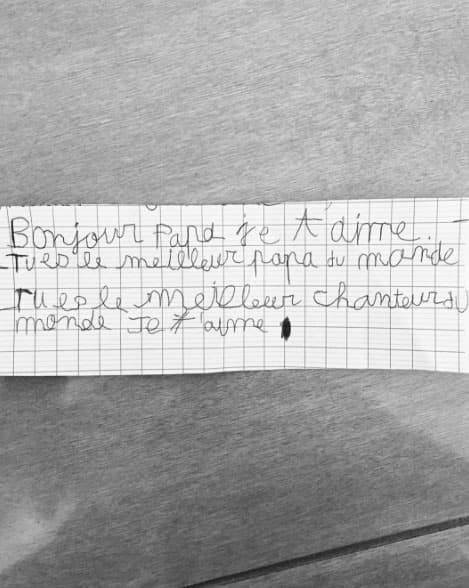 Bonjour Papa je t'aime.
Tu es le meilleur papa du monde
Tu es le meilleur chanteur du
monde Je t'aime